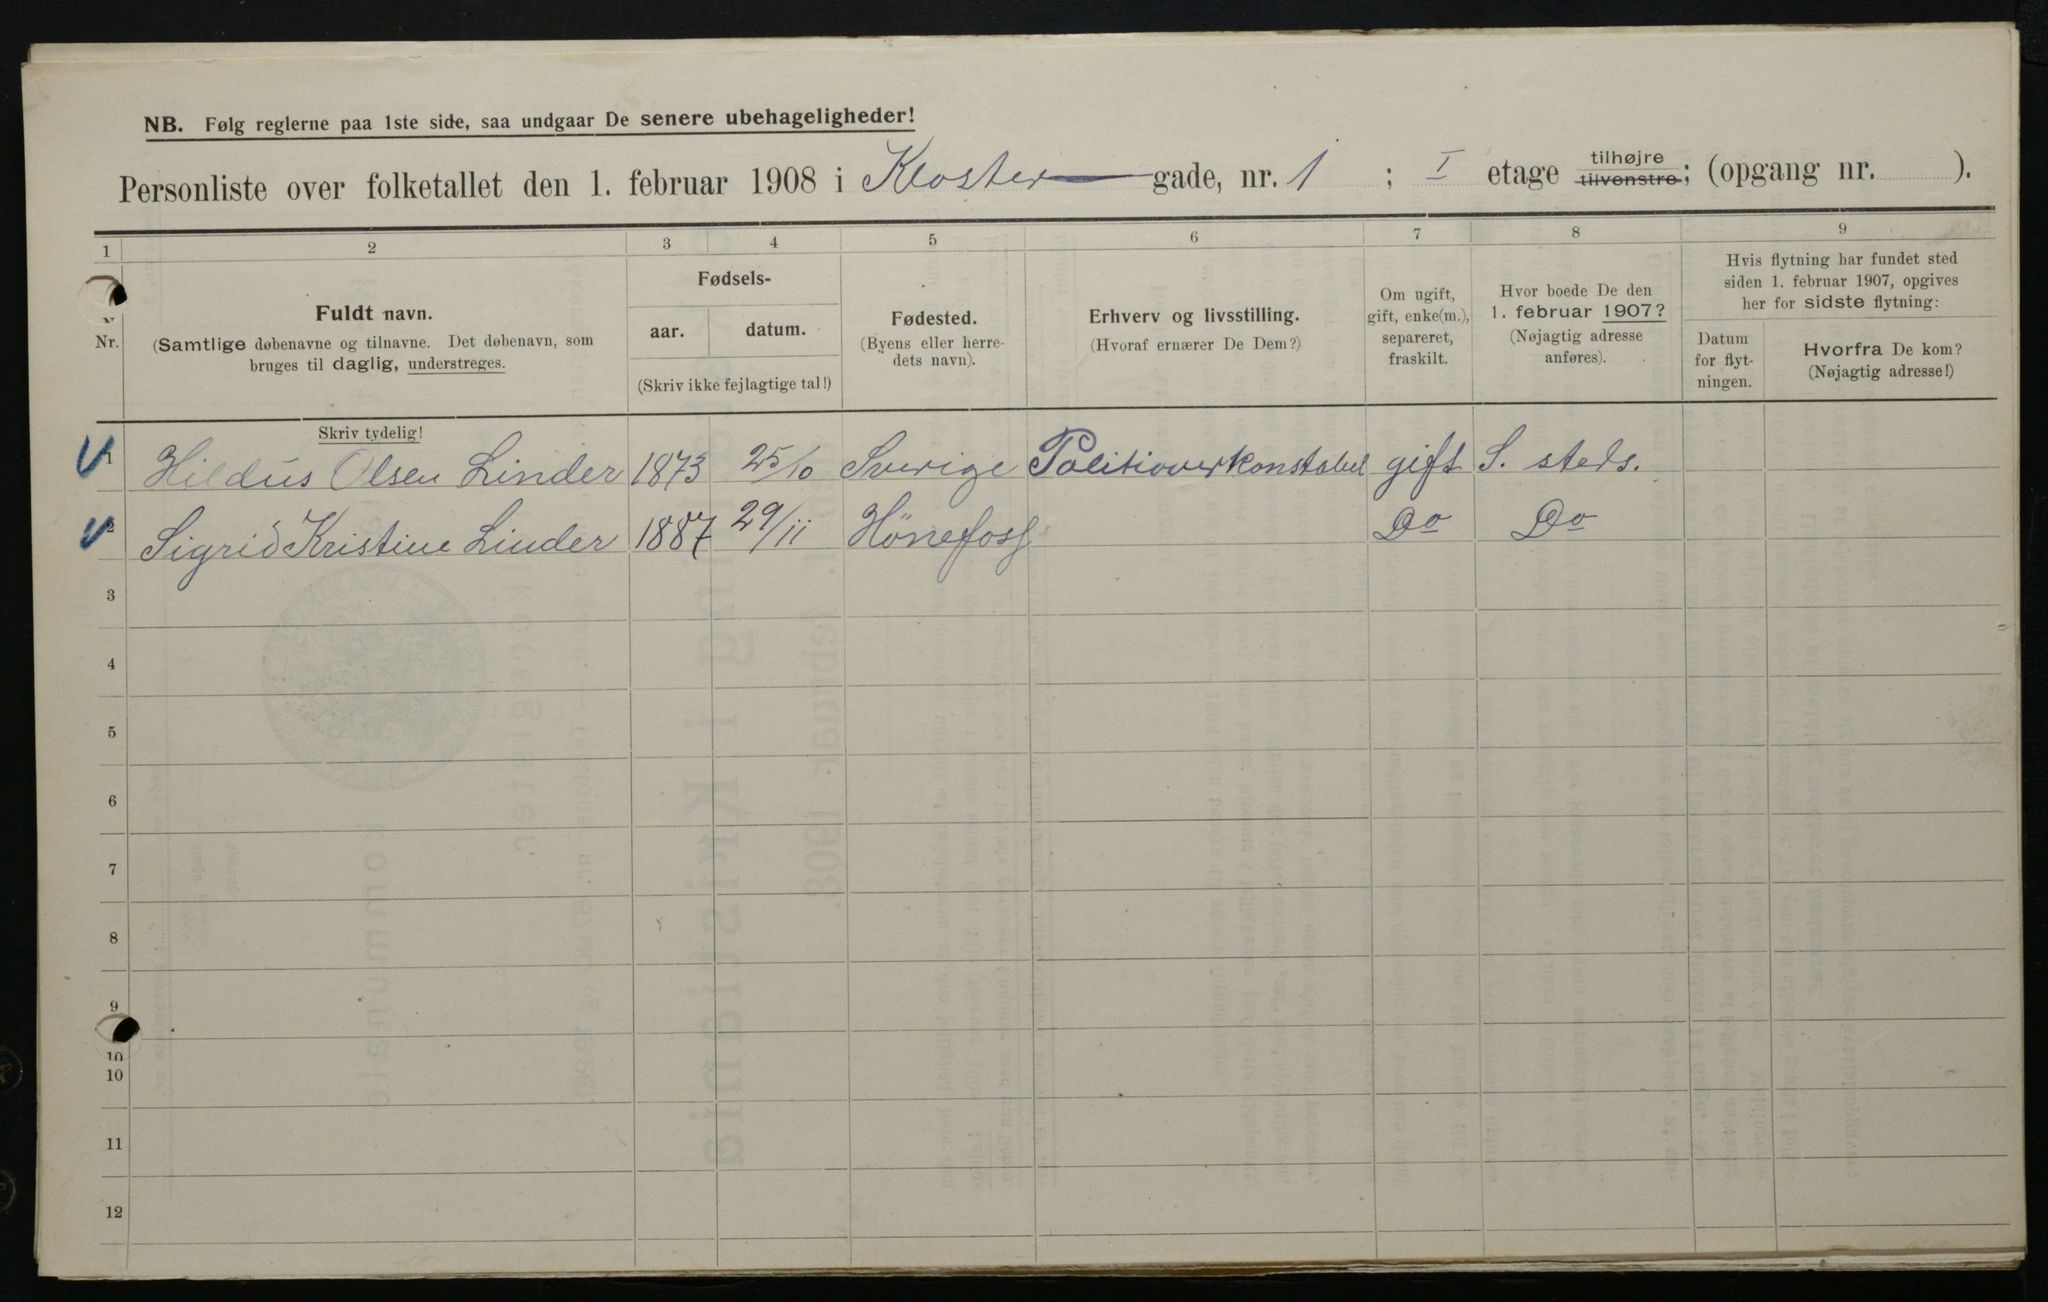 NB. Følg reglerne paa 1ste side, saa undgaar De senere ubehageligheder!
Personliste over folketallet den 1. februar 1908 i Kloster gade, nr. 1 ; I etage tilhøjre tilvenstre; (opgang nr. ).
1 2 3 4 5 6 7 8 9
Nr.
Fuldt navn.
(Samtlige døbenavne og tilnavne. Det døbenavn, som
bruges til daglig, understreges.
Fødsels-
aar. datum.
(Skriv ikke fejlagtige tal!)
Fødested.
(Byens eller herre-
dets navn).
Erhverv og livsstilling.
(Hvoraf ernærer De Dem?)
Om ugift,
gift, enke(m.),
separeret,
fraskilt.
Hvor boede De den
1. februar 1907?
(Nøjagtig adresse
anføres).
Hvis flytning har fundet sted
siden 1. februar 1907, opgives
her for sidste flytning:
Datum
for flyt-
ningen.
Hvorfra De kom?
(Nøjagtig adresse!)
Skriv tydelig!
1 Hildus Olsen Linder 1873 25/10 Sverige Politioverkonstabel gift S. steds.
2 Sigrid Kristine Linder 1887 29/11 Hönefoss Do Do
3
4
5
6
7
8
9
10
10
11
12